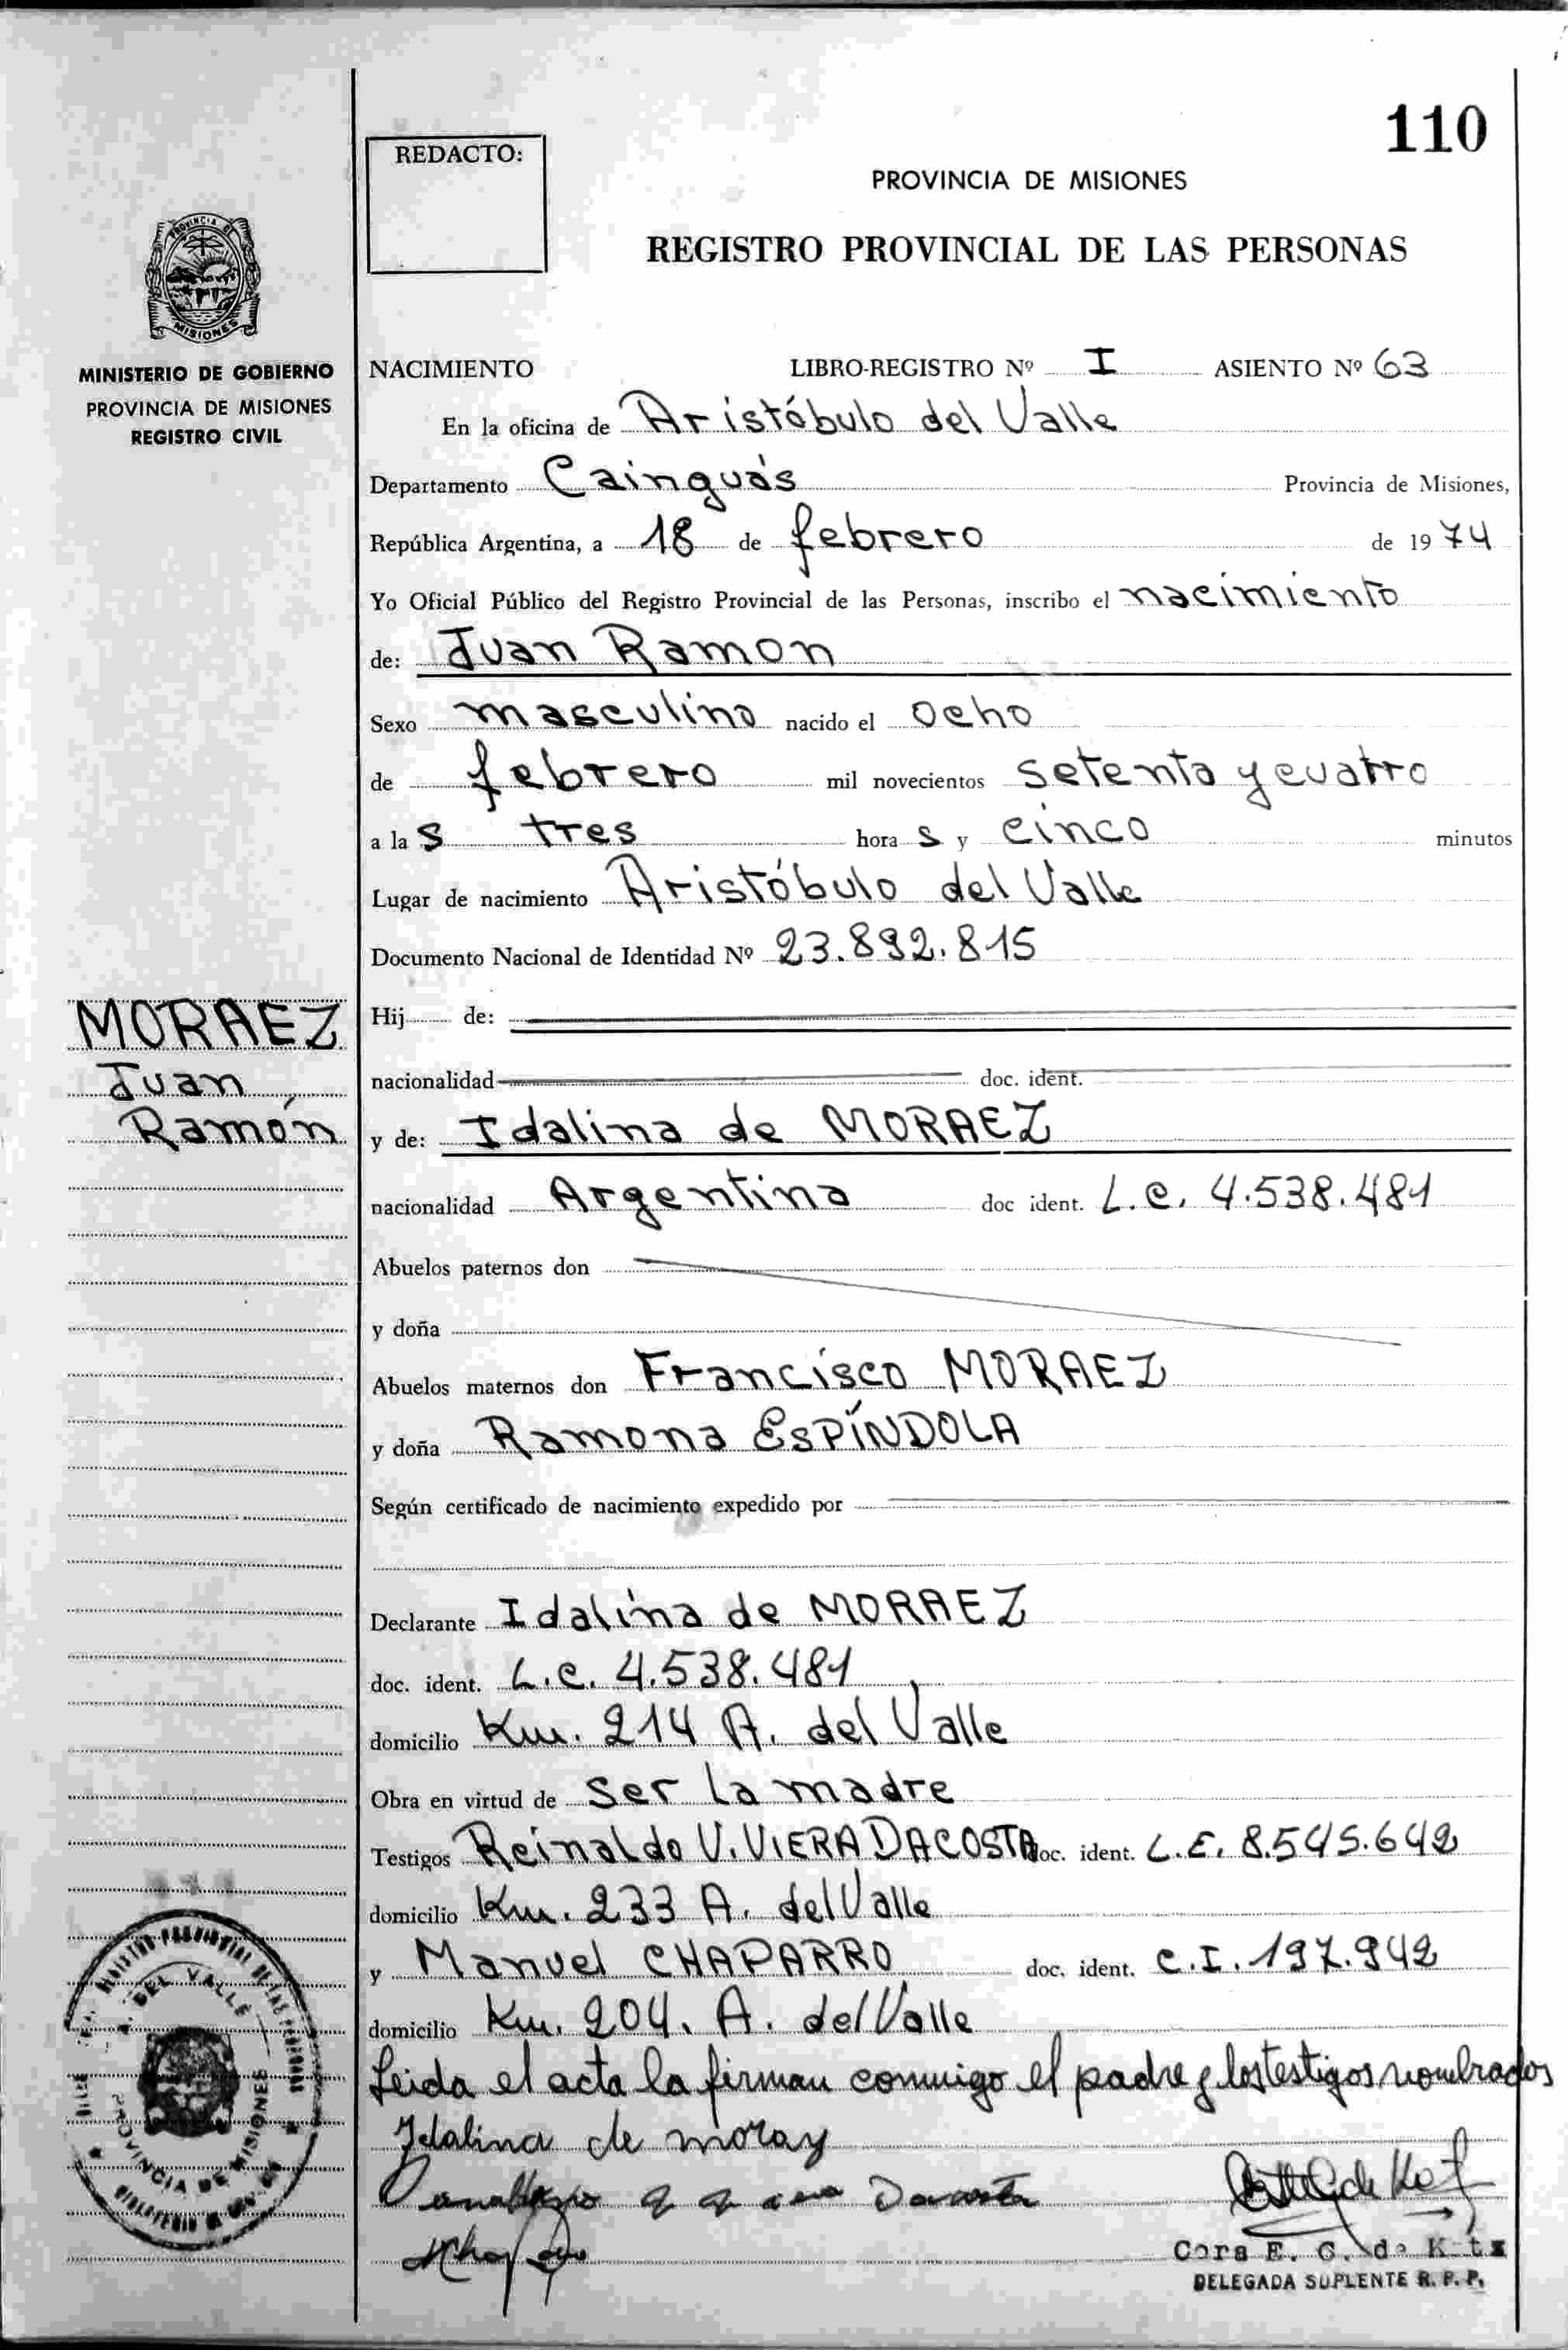 110
REDACTO:
PROVINCIA DE MISIONES
REGISTRO PROVINCIAL DE LAS PERSONAS
PROVINCIA DE
MISIONES
MINISTERIO DE GOBIERNO
PROVINCIA DE MISIONES
REGISTRO CIVIL
NACIMIENTO LIBRO-REGISTRO Nº I ASIENTO Nº 63
En la oficina de Aristóbulo del Valle
Departamento Cainguás Provincia de Misiones,
República Argentina, a 18 de febrero de 1974
Yo Oficial Público del Registro Provincial de las Personas, inscribo el nacimiento
de: Juan Ramon
Sexo masculino nacido el ocho
de febrero mil novecientos setenta y cuatro
a las tres horas y cinco minutos
Lugar de nacimiento Aristóbulo del Valle
Documento Nacional de Identidad Nº 23.892.815
MORAEZ
Juan
Ramón
Hij de:
nacionalidad doc. ident.
y de: Idalina de MORAEZ
nacionalidad Argentina doc ident. L.C. 4.538.481
Abuelos paternos don
y doña
Abuelos maternos don Francisco MORAEZ
y doña Ramona ESPÍNDOLA
Según certificado de nacimiento expedido por
Declarante Idalina de MORAEZ
doc. ident. L.C. 4.538.481
domicilio Km. 214 A. del Valle
Obra en virtud de ser la madre
Testigos Reinaldo V. VIERA DACOSTA doc. ident. L.E. 8.545.642
domicilio Km. 233 A. del Valle
y Manuel CHAPARRO doc. ident. C.I. 197.942
domicilio Km. 204. A. del Valle
Leida el acta la firman conmigo el padre y los testigos nombrados
Idalina de moray
Dacosta
Cora E. G. de K
DELEGADA SUPLENTE R. P. P.
REGISTRO PROVINCIAL DE LAS PERSONAS
A. DEL VALLE
PROVINCIA DE MISIONES